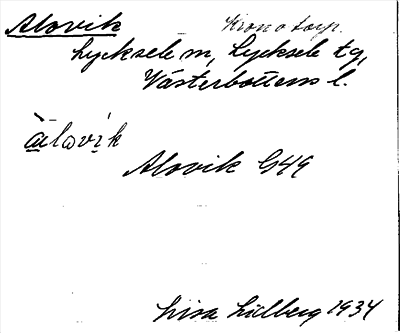 Alovik Kronotorp.
Lycksele m, Lycksele tg,
Västerbottens l.
àlovik
Alovik G49
Lisa Lidberg 1934